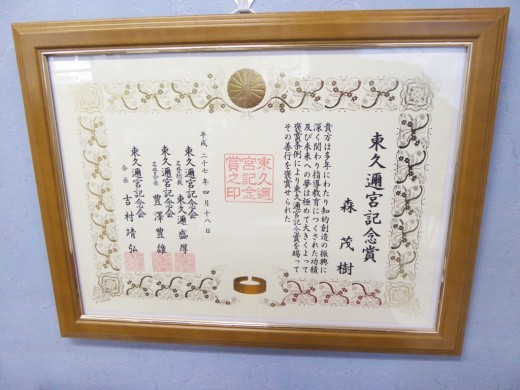 東久邇宮記念賞
森茂樹
貴方は多年にわたり知的創造の振興に
深く関わり指導教育につくされた功績
及び未来への夢は極めて大きくよって
褒賞条例により東久邇宮記念賞を賜って
その善行を褒賞せられた
平成二十七年四月十八日
東久邇宮記念会
名誉総裁 東久邇盛厚
東久邇宮記念会
名誉会長 豊澤豊雄
東久邇宮記念会
会長 吉村靖弘
東久邇
宮記念
賞之印